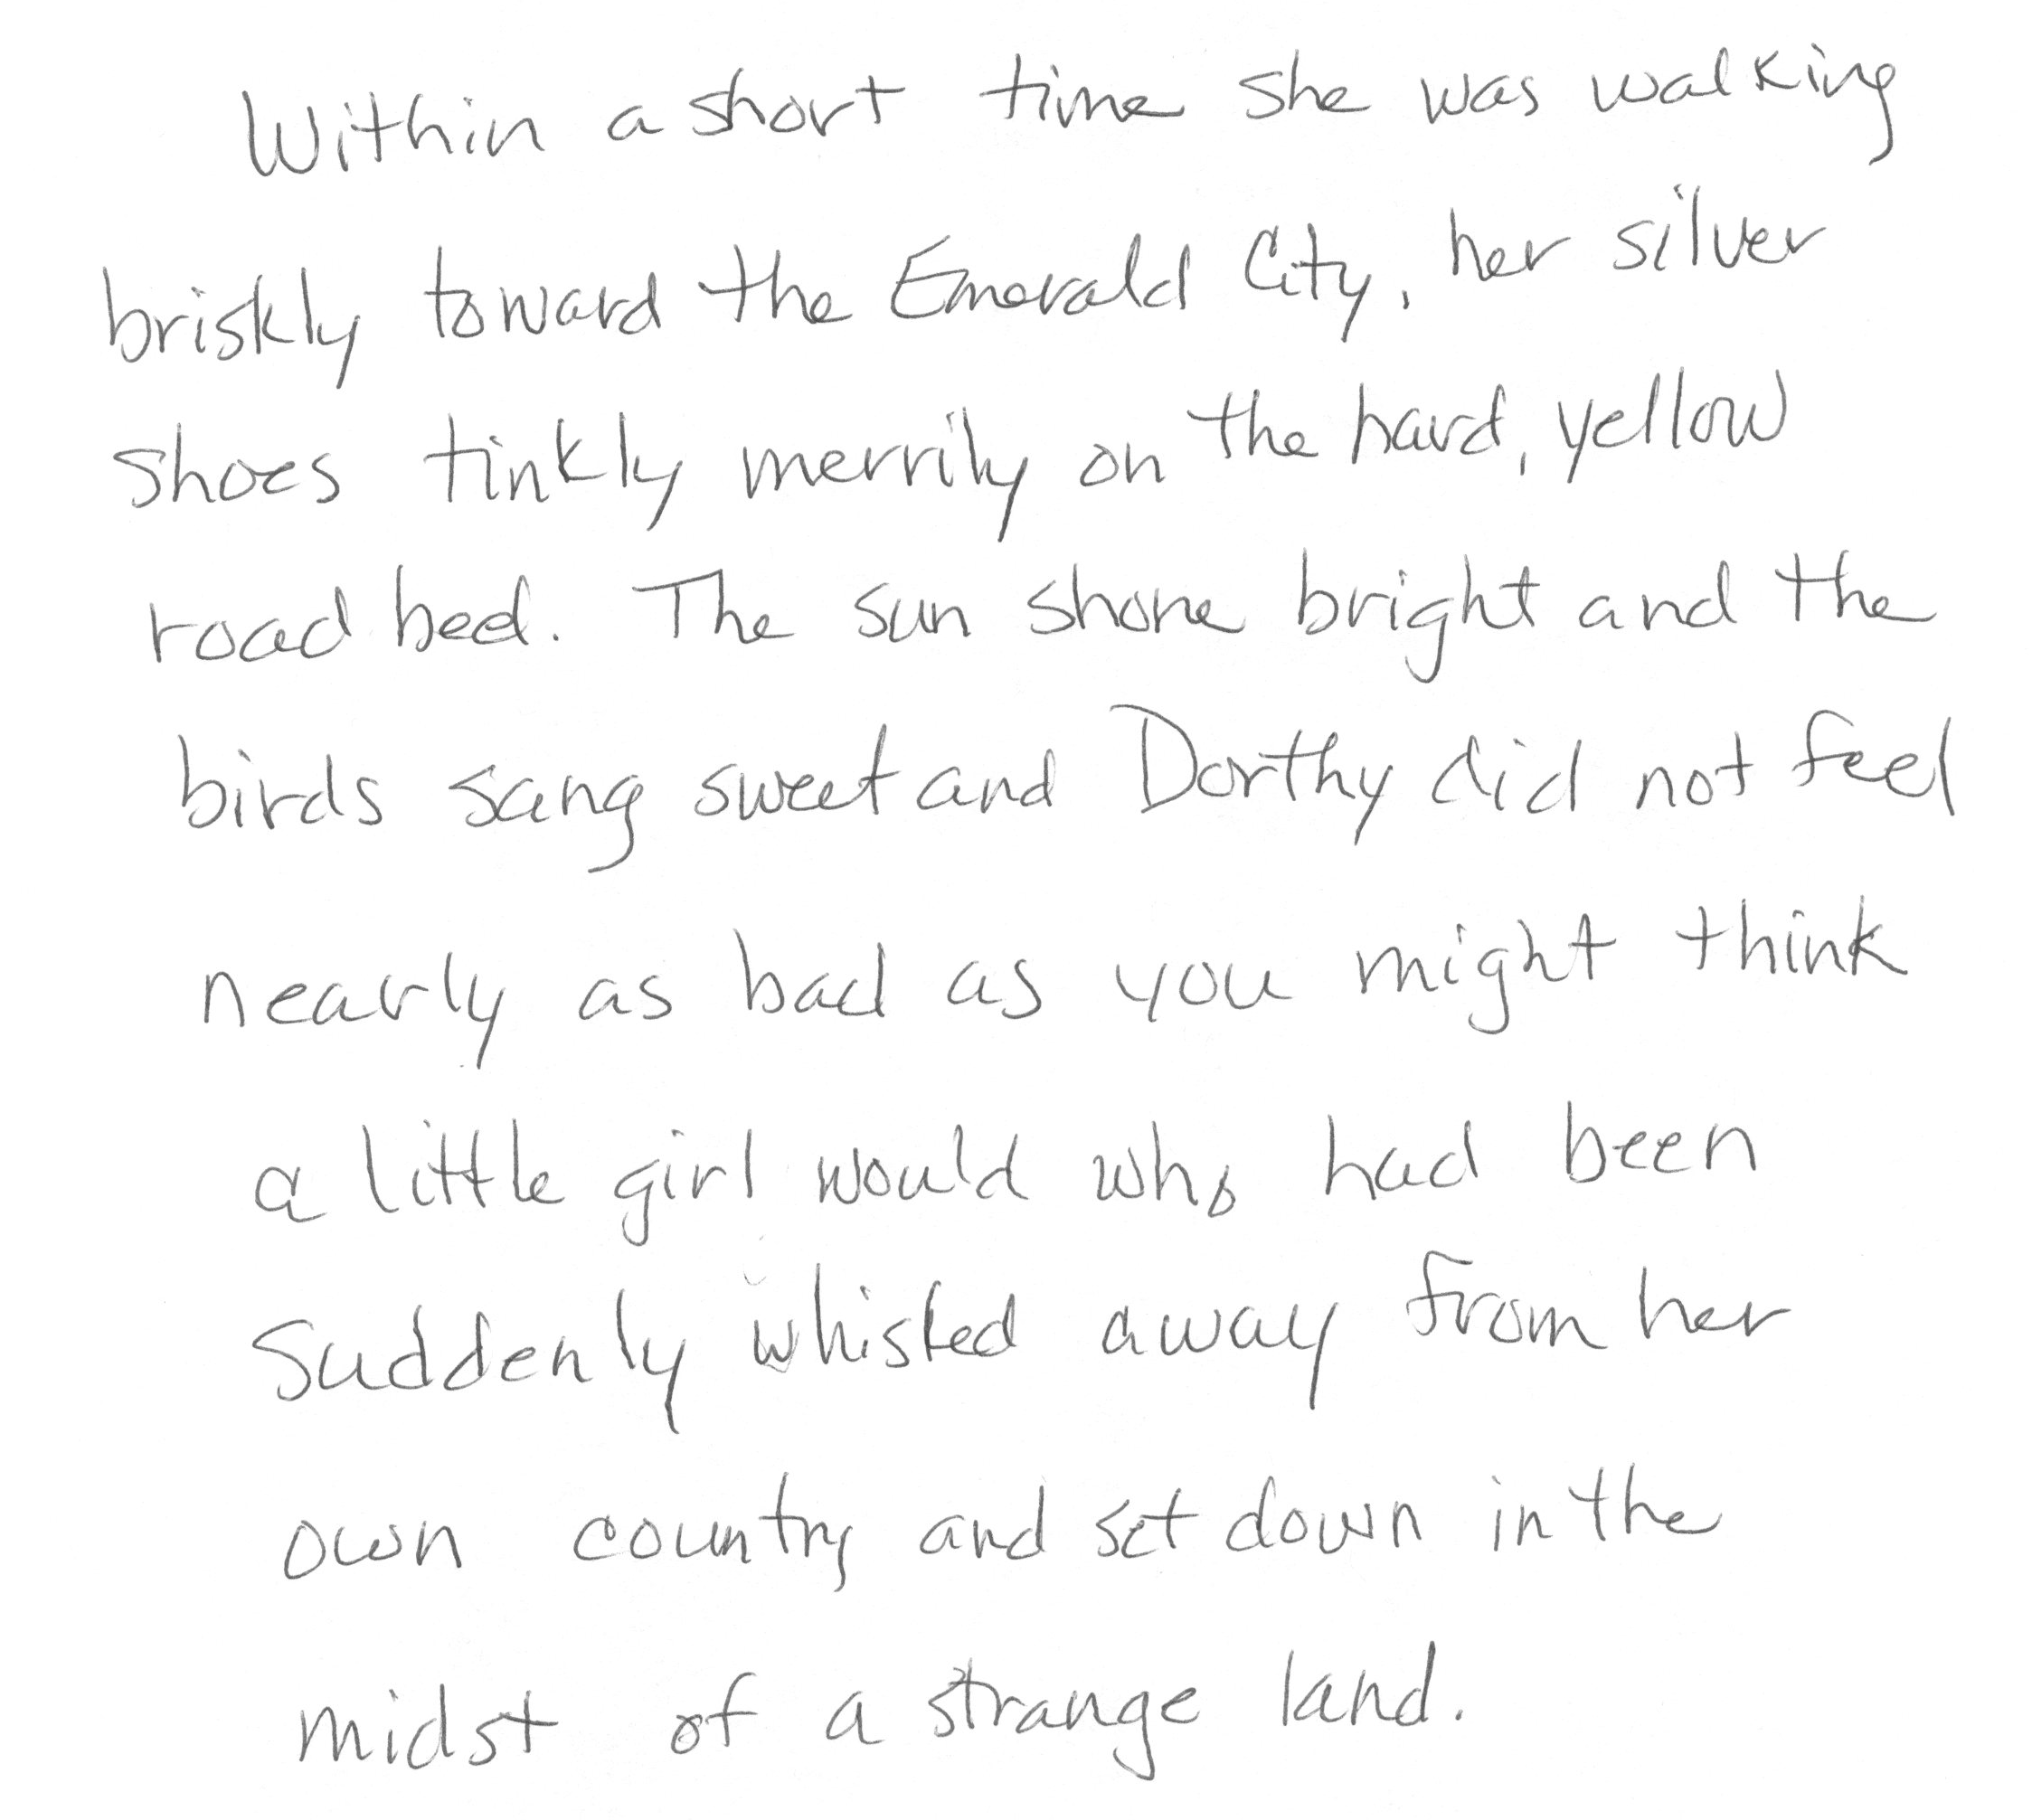 Within a short time she was walking
briskly toward the Emerald City, her silver
shoes tinkly merrily on the hard, yellow
road bed. The sun shone bright and the
birds sang sweet and Dorthy did not feel
nearly as bad as you might think
a little girl would who had been
suddenly whisked away from her
own country and set down in the
midst of a strange land.